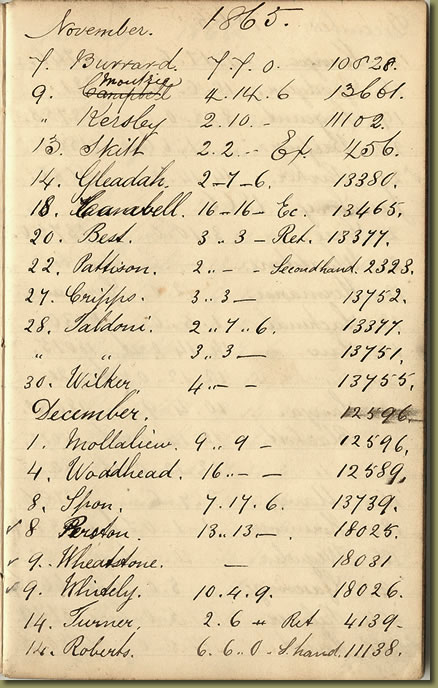 November. 1865.
7. Burrard. 7. 7. 0. 10828.
Mouttrie
9. Campbell 4. 14. 6 13661.
" Kersley 2. 10. - 11102.
13. Skitt 2. 2. - Ex. 456.
14. Gleadah. 2-7-6. 13380.
18. 16-16- Ec. 13465.
20. Best. 3..3 - Ret. 13377.
22. Pattison. 2..- - Secondhand. 2323.
27. Cripps. 3..3- 13752.
28. Taldoni. 2..7..6. 13377.
" " 3..3- 13751.
30. Wilker 4..- - 13755.
December. 12596
1. 9..9 - 12596.
4. Woddhead. 16..- - 12589.
8. Spon. 7. 17. 6. 13739.
✓ 8 13..13.-. 18025.
✓ 9. Wheatstone. - 18031
✓ 9. Whitely. 10. 4. 9. 18026.
14. Turner. 2. 6 " Ret 4139-
14. Roberts. 6. 6..0 - S.hand. 11138.